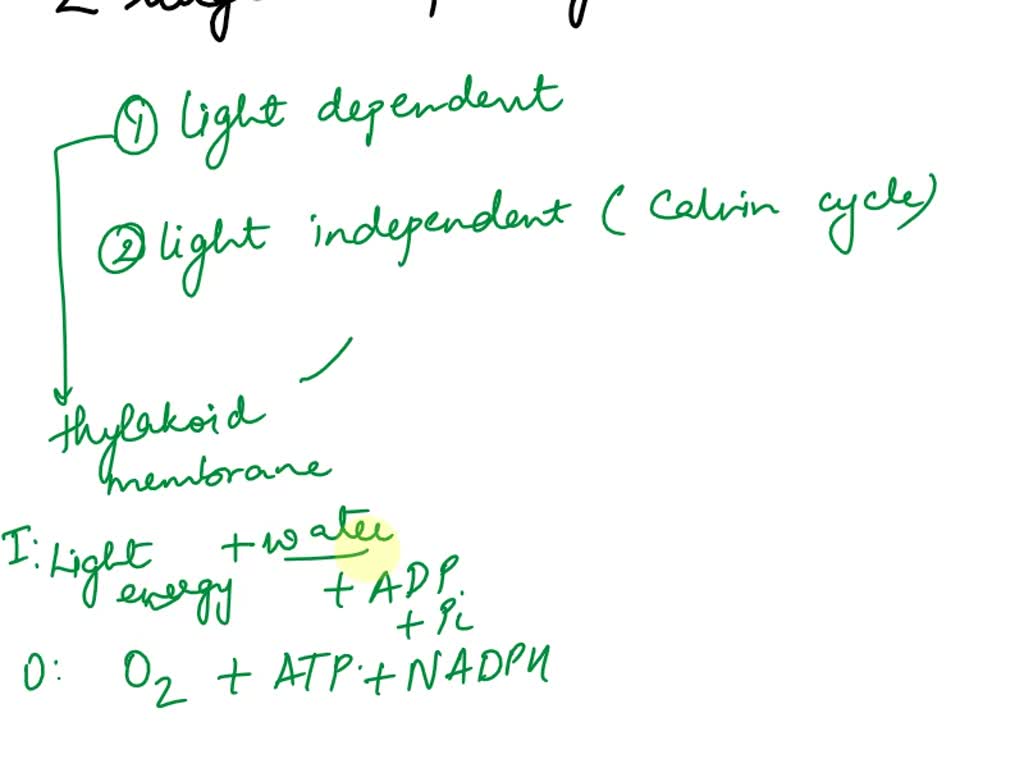 2
① light dependent
② light independent ( Calvin cycle)
thylakoid
membrane
I: Light energy + water
+ ADP
+ Pi
O: O2 + ATP + NADPH